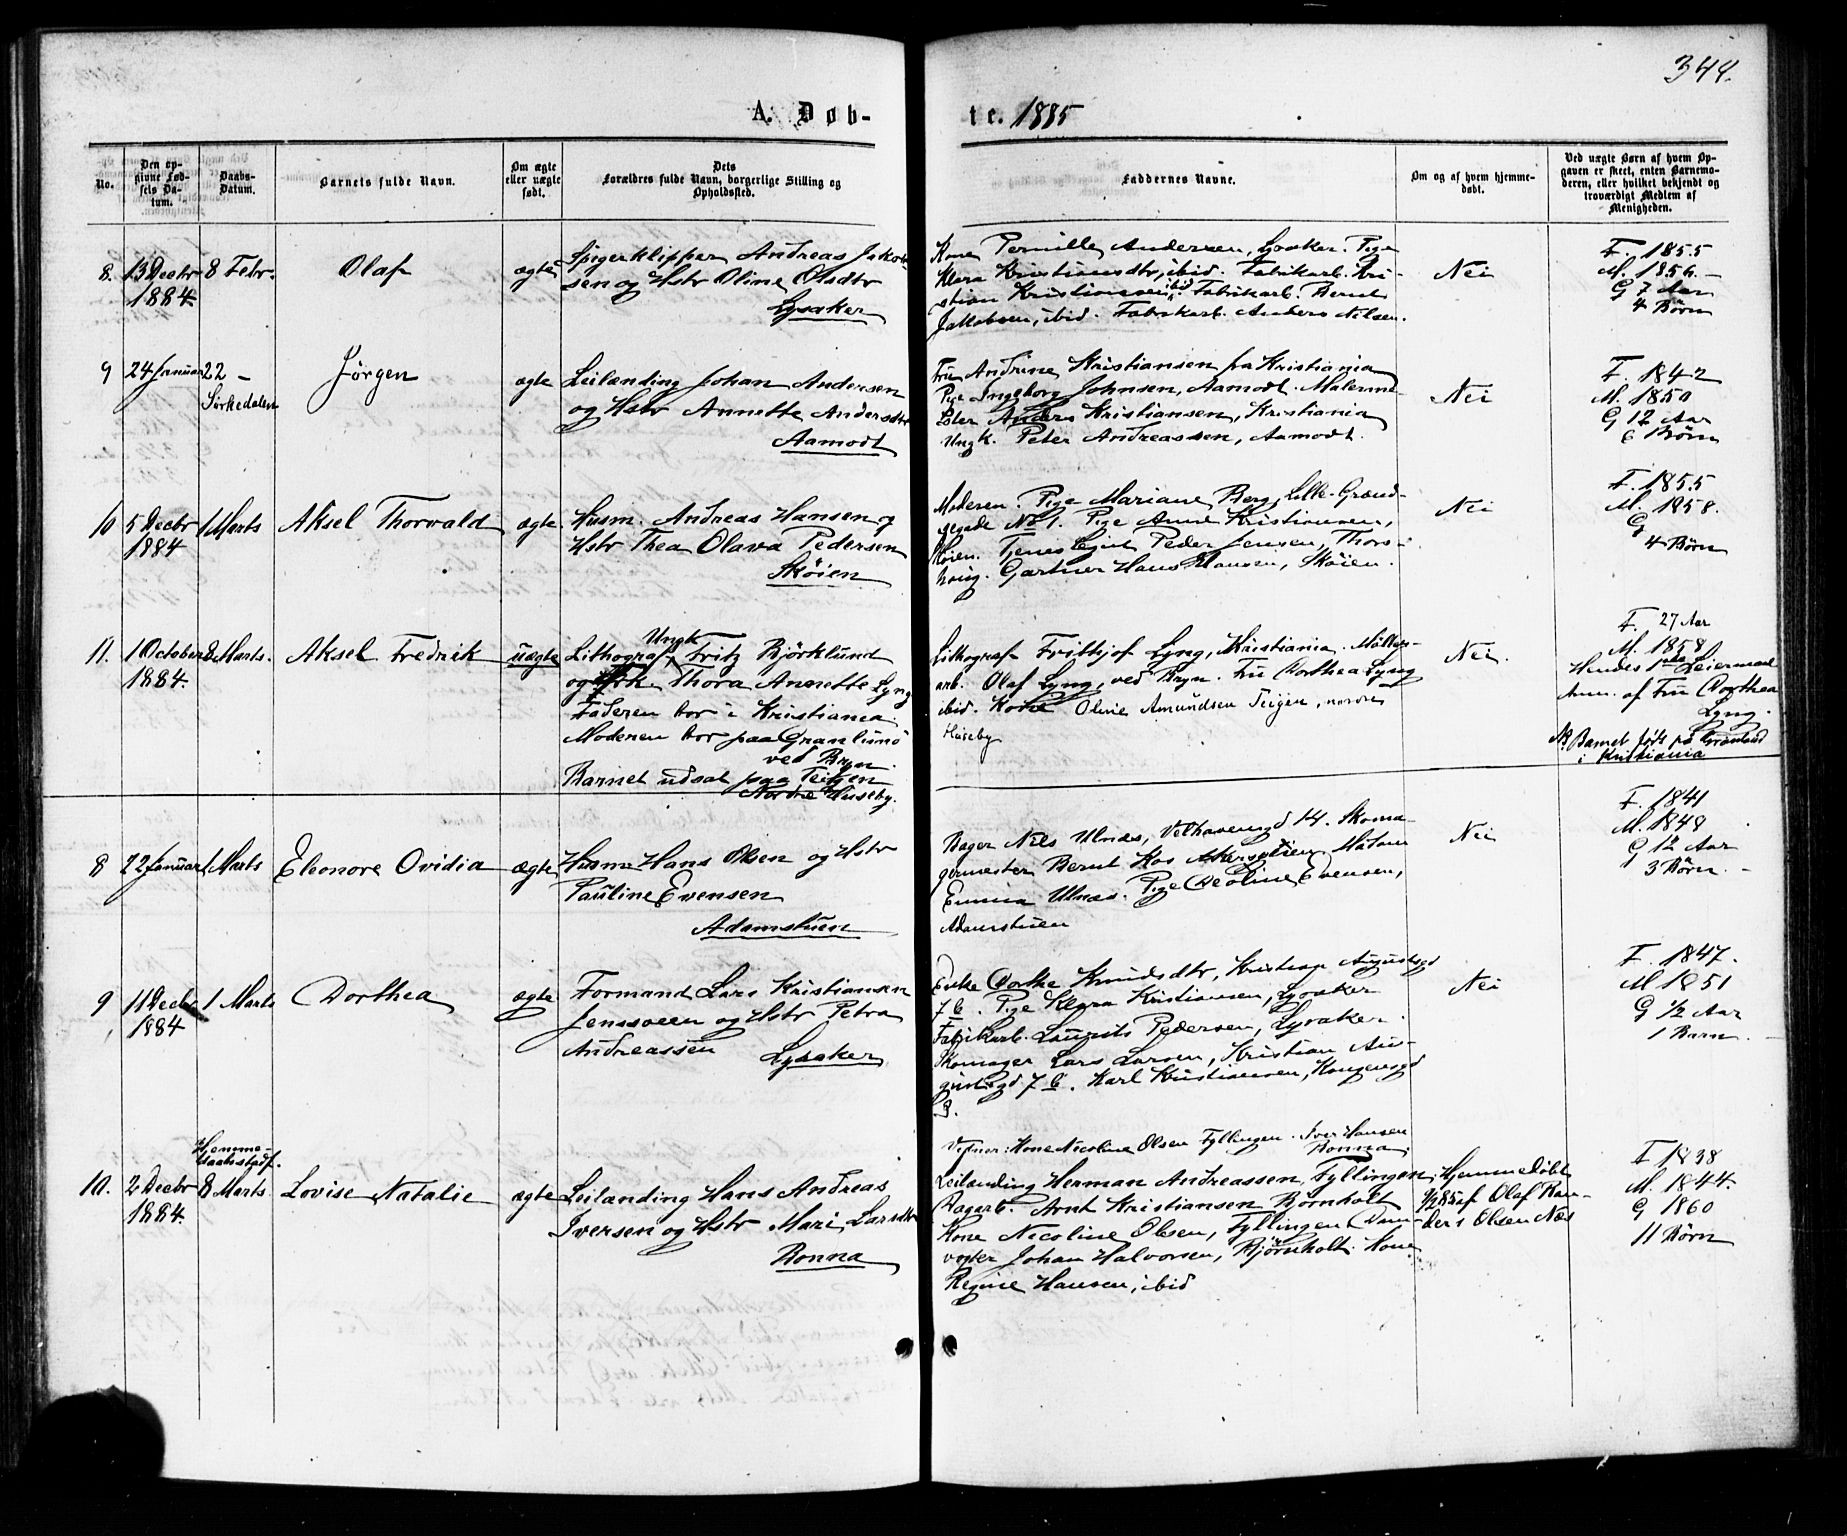 344.
A. Døb-
te. 1885
No.
Den op-
givne Fød-
sels Da-
tum.
Daabs-
Datum.
Barnets fulde Navn.
Om ægte
eller uægte
født.
Dets
Forældres fulde Navn, borgerlige Stilling og
Opholdssted.
Faddernes Navne.
Om og af hvem hjemme-
døbt.
Ved uægte Børn af hvem Op-
gaven er skeet, enten Barnemo-
deren, eller hvilket bekjendt og
troværdigt Medlem af
Menigheden.
8. 13 Decbr 8 Febr. Olaf ægte
1884
Spigerklipper Andreas Jakob-
sen og Hstr Oline Olsdtr
Lysaker
Kone Pernille Andersen, Lysaker. Pige
Klara Kristiansdtr, ibid. Fabrikarb. Kri-
stian Kristiansen ibid. Fabrikarb. Bernt
Jakobsen, ibid. Fabrikarb. Anders Nilsen.
Nei
F. 1855
M. 1856.
G 7 Aar
4 Børn
9 24 Januar 22 - Jørgen ægte
Sørkedalen
Leilænding Johan Andersen
og Hstr Annette Andersdtr
Aamodt
Fru Andrine Kristiansen fra Kristiania
Pige Ingeborg Johnsen, Aamodt. Malerme-
ster Anders Kristiansen, Kristiania
Ungk. Peter Andreassen, Aamodt.
Nei
F. 1842
M. 1850
G 12 Aar
6 Børn
10 5 Decbr 1 Marts Aksel Thorvald ægte
1884
Husm. Andreas Hansen og
Hstr Thea Olava Pedersen
Skøien
Moderen. Pige Mariane Berg, Lille Grænd-
segade No 1. Pige Anne Kristiansen,
Skøien. Tjenestegut Peder Jensen, Thors-
houg. Gartner Hans Hansen, Skøien.
Nei
F. 1855
M. 1858.
G
4 Børn
11. 1 October 8 Marts. Aksel Fredrik uægte
1884.
Ungk
Lithograf Fritz Bjørklund
og Thora Annette Lyng
Faderen bor i Kristiania
Moderen bor paa Granlund
ved Bryn.
Barnet udsat paa Teigen
Nordre Huseby.
Lithograf Frithjof Lyng, Kristiania. Møller-
arb. Olaf Lyng, ved Bryn. Fru Dorthea Lyng
ibid. Kone Oline Amundsen Teigen, nordre
Huseby
Nei.
F. 27 Aar
M. 1858
Hendes 1ste Leiermaal
Anm. af Fru Dorthea
Lyng.
NB Barnet født på Grønland
i Kristiania
8 22 Januar 1 Marts Eleonore Ovidia ægte
Husm Hans Olsen og Hstr
Pauline Evensen
Adamstuen
Bager Nils Ulnæs, Velhavensgd 14. Skoma-
germester Bernt Madam
Emma Ulnæs. Pige Evensen,
Adamstuen
Nei
F. 1841
M. 1848
G 12 Aar
3 Børn.
9 11 Decbr 1 Marts Dorthea ægte
1884
Formand Lars Kristiansen
Jensveen og Hstr Petra
Andreassen Lysaker
Enke Dorthe Knudsdtr, Kristian Augustsgd
7 b. Pige Klara Kristiansen, Lysaker
Fabrikarb. Laurits Pedersen, Lysaker.
Skomager Lars Larsen, Kristian Au-
gustsgd 7 b. Karl Kristiansen, Kongensgd
Nei
F. 1847.
M 1851
G 1/2 Aar
1 Barn.
Hjemme-
daabstadf.
10. 2 Decbr 8 Marts. Lovise Natalie ægte
1884.
Leilænding Hans Andreas
Iversen og Hstr Mari Larsdtr
Bonna
Vidner: Kone Nicoline Olsen Fyllingen. Iver Hansen
Bonna.
Leilænding Herman Andreassen, Fyllingen,
Dagarb. Arnt Kristiansen Bjørnholt
Kone Nicoline Olsen, Fyllingen Dam-
vogter Johan Halvorsen, Bjørnholt. Kone
Regine Hansen, ibid
Hjemmedøbt
af Olaf Ran-
ders Olsen Næs
F 1838
M. 1844.
G 1860
11 Børn